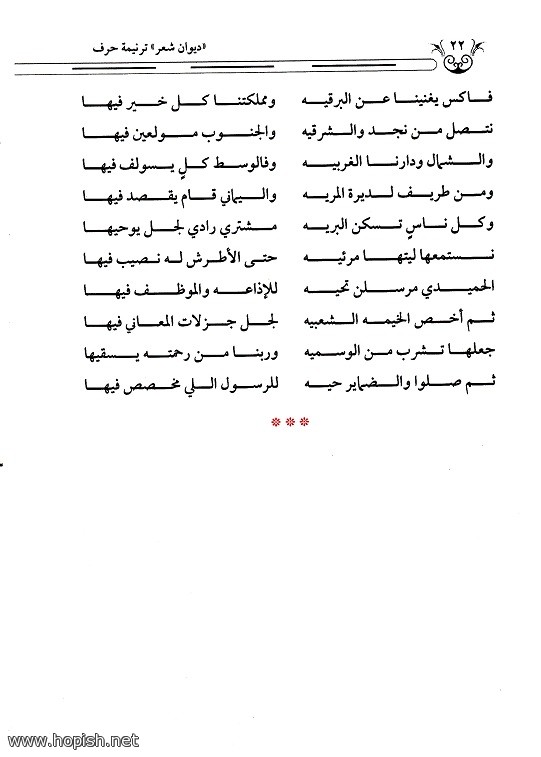 ٢٢
«ديوان شعر» ترنيمة حرف
فاكس يغنينا عن البرقيه ومملكتنا كل خير فيها
نتصل من نجد والشرقيه والجنوب مولعين فيها
والشمال ودارنا الغربيه وفالوسط كلٍ يسولف فيها
ومن طريف لديرة المريه واليماني قام يقصد فيها
وكل ناسٍ تسكن البريه مشتري رادي لجل يوحيها
نستمعها ليتها مرئيه حتى الأطرش له نصيب فيها
الحميدي مرسلن تحيه للإذاعه والموظف فيها
ثم أخص الخيمه الشعبيه لجل جزلات المعاني فيها
جعلها تشرب من الوسميه وربنا من رحمته يسقيها
ثم صلوا والضماير حيه للرسول اللي مخصص فيها
***
www.hopish.net